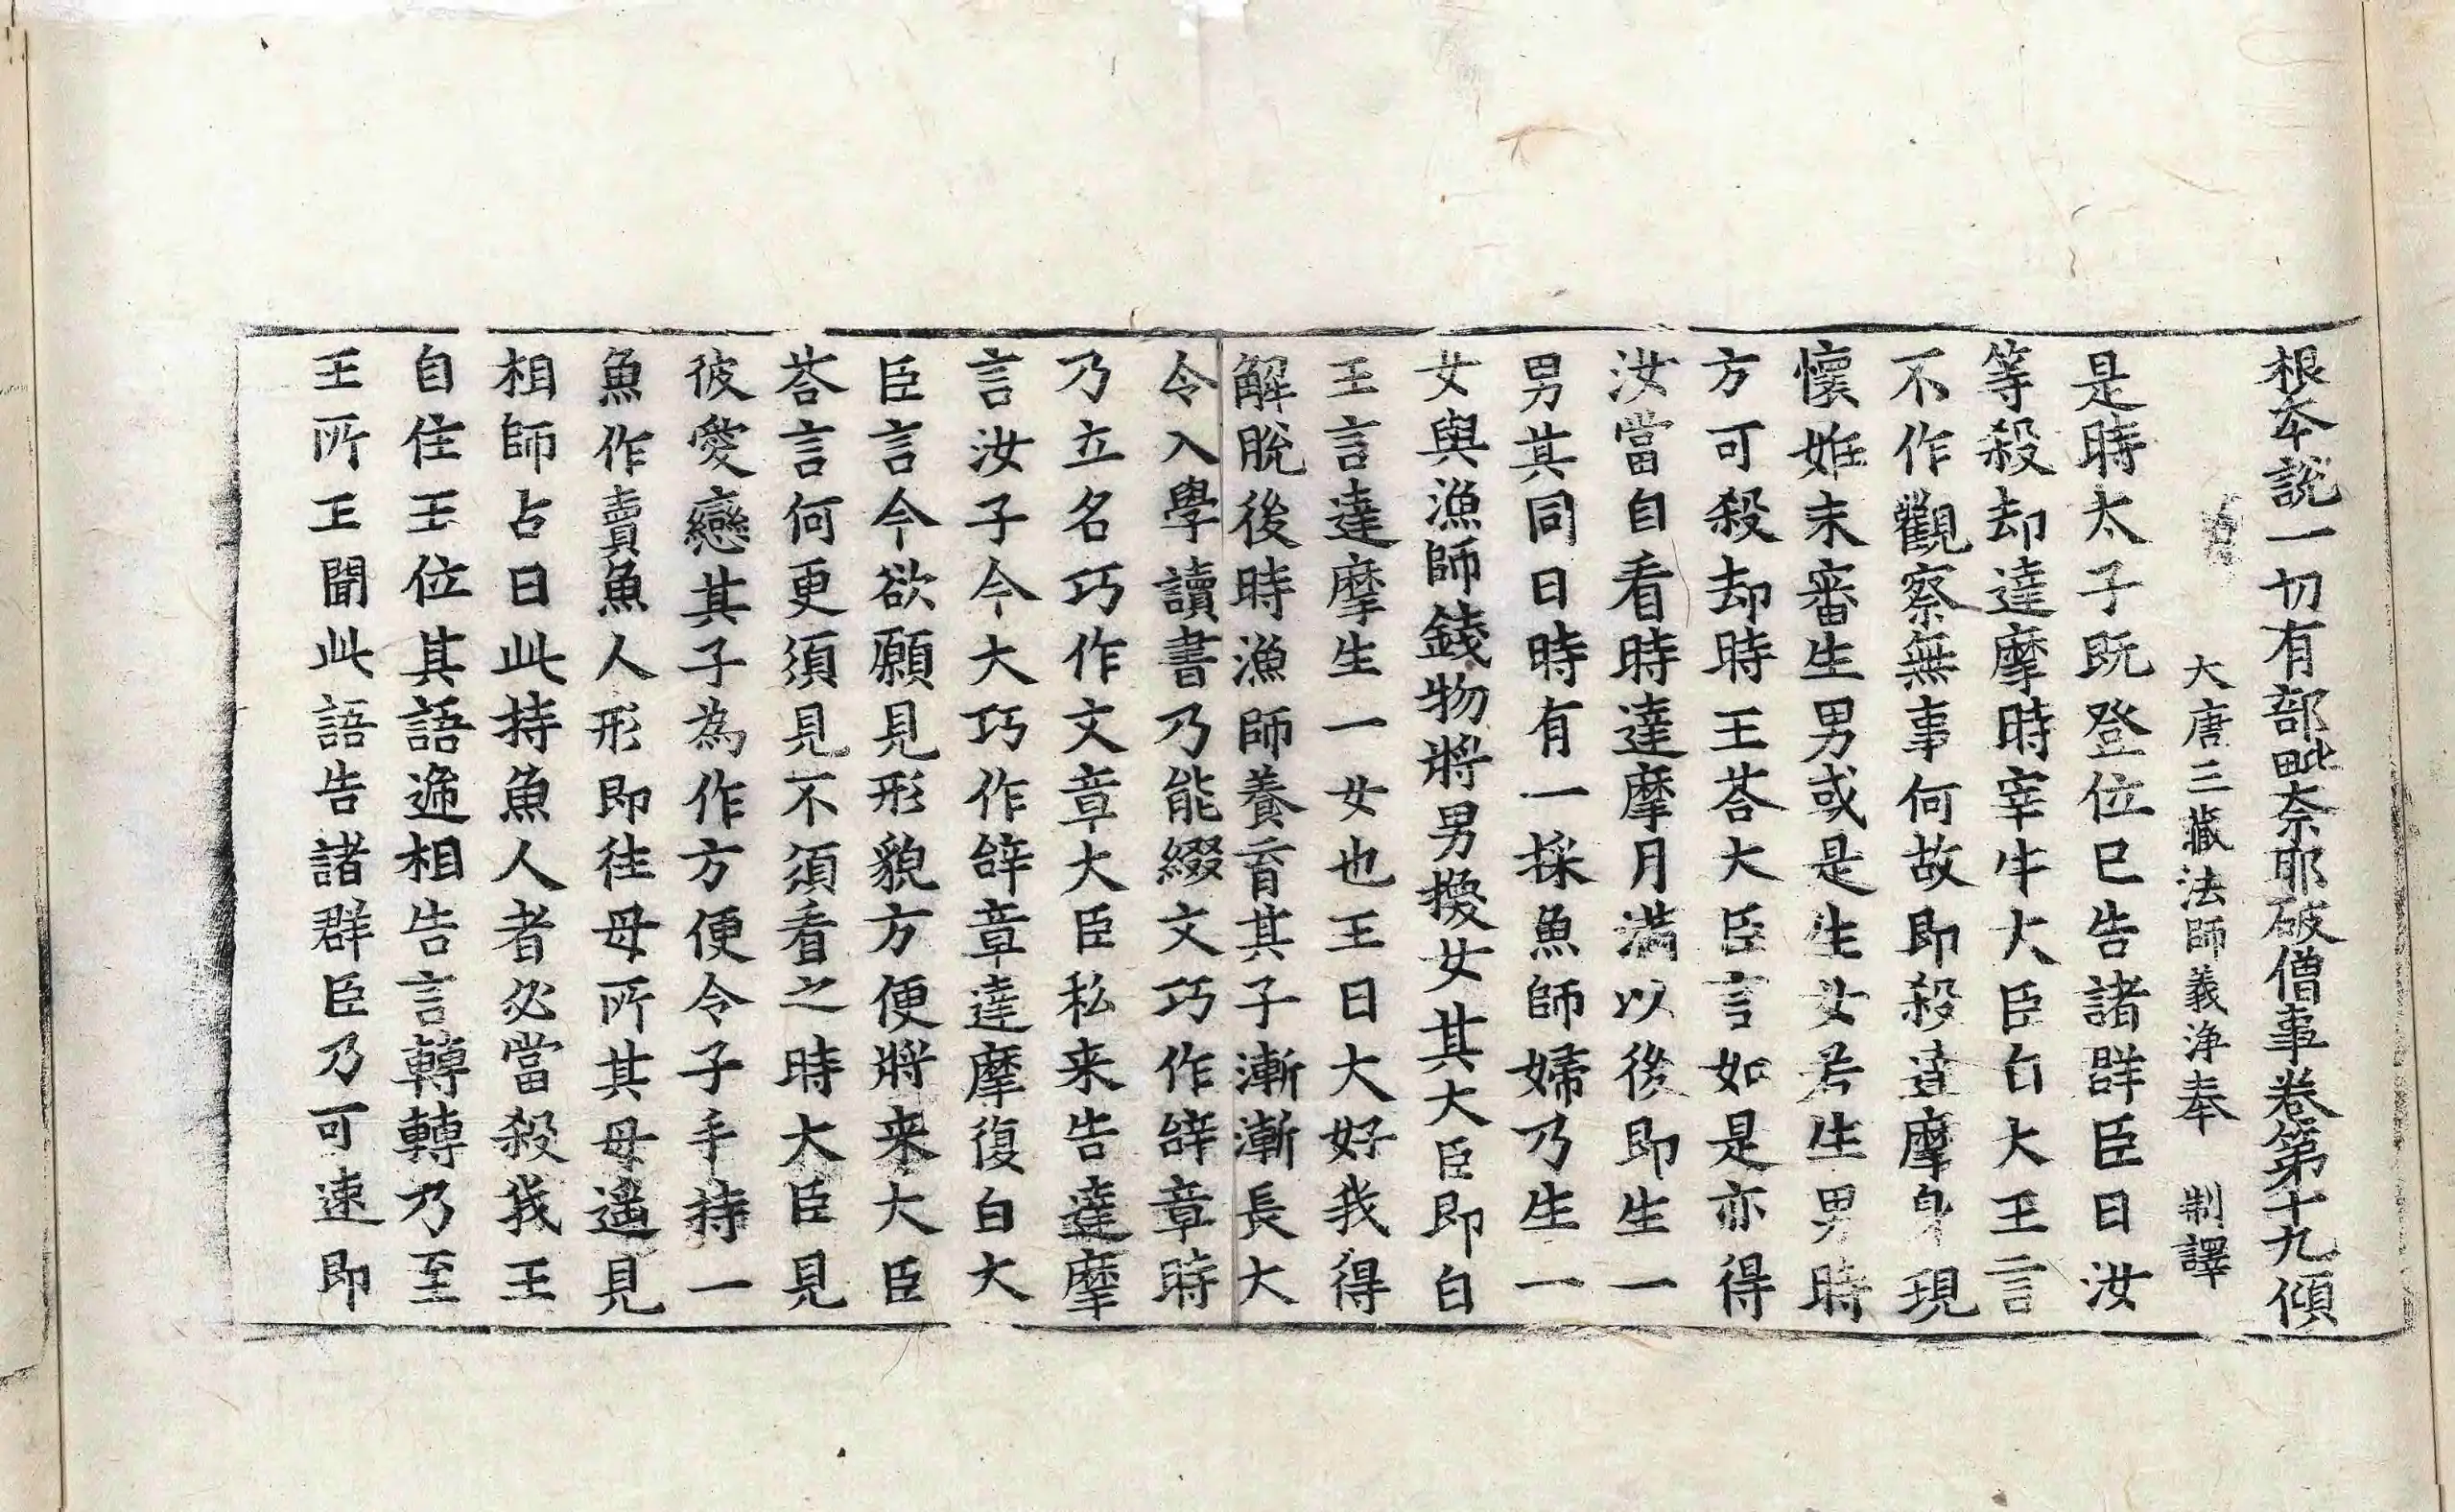 根本說一切有部毗奈耶破僧事卷第十九傾
大唐三藏法師義淨奉　制譯
是時太子既登位已告諸群臣曰汝
等殺却達摩時宰牛大臣白大王言
不作觀察無事何故即殺達摩身現
懷姙未審生男或是生女若生男時
方可殺却時王荅大臣言如是亦得
汝當自看時達摩月滿以後即生一
男其同日時有一採魚師婦乃生一
女與漁師錢物將男換女其大臣即白
王言達摩生一女也王曰大好我得
解脫後時漁師養育其子漸漸長大
令入學讀書乃能綴文巧作辝章時
乃立名巧作文章大臣私来告達摩
言汝子今大巧作辝章達摩復白大
臣言今欲願見形貌方便將来大臣
荅言何更須見不須看之時大臣見
彼愛戀其子為作方便令子手持一
魚作賣魚人形即往母所其母遥見
相師占曰此持魚人者必當殺我王
自住王位其語遞相告言轉轉乃至
王所王聞此語告諸群臣乃可速即